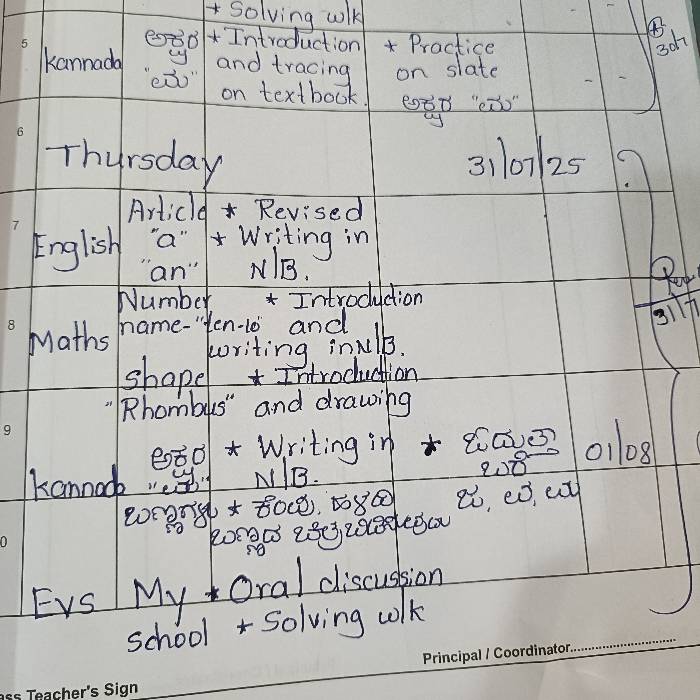 * Solving wlk
5 Kannada ಅಕ್ಷರ * Introduction * Practice
and tracing on slate
on textbook. ಅಕ್ಷರ
6 Thursday 31/07/25
7 English Article * Revised
"a" * Writing in
"an" N/B.
8 Maths Number * Introduction
name-"ten-10 and
writing in N/B.
shape * Introduction
"Rhombus" and drawing
9 Kannada ಅಕ್ಷರ * Writing in * 01/08
N/B. ಬರಿ
Evs My * Oral discussion
school * Solving wlk
Principal / Coordinator
ass Teacher's Sign